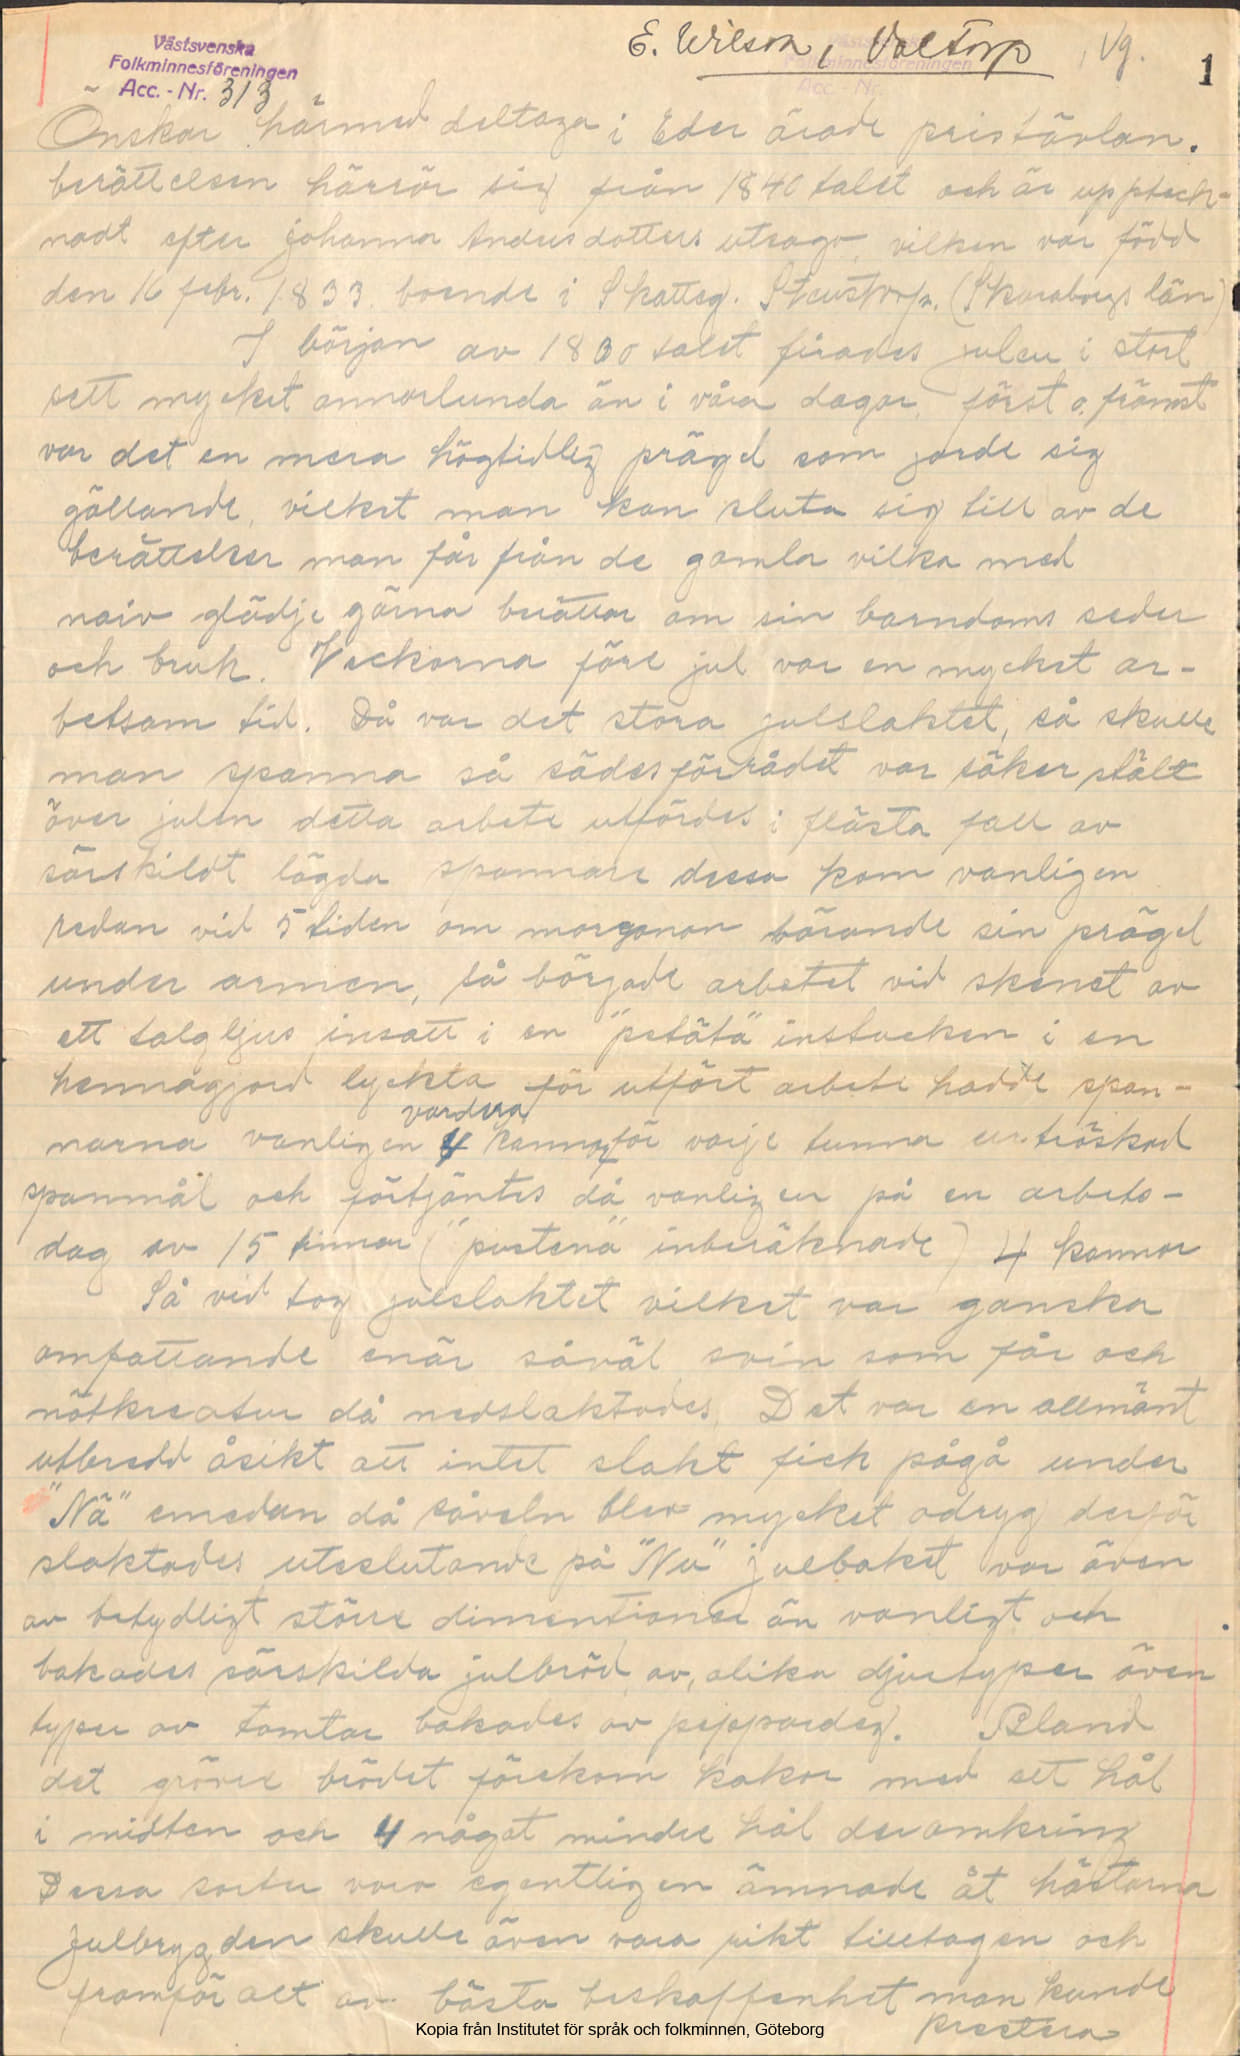 E. Wilson, Valtorp, Vg.
1
Västsvenska
Folkminnesföreningen
Acc.-Nr. 313
Önskar härmed deltaga i Eder ärade pristävlan.
berättelsen härrör sig från 1840 talet och är uppteck-
nadt efter johanna Andersdotters utsago, vilken var född
den 16 febr. 1833 boende i Skatteg. Stenstorp. (Skaraborgs län)
I början av 1830 talet firades julen i stort
sett mycket annorlunda än i våra dagar, först o. främst
var det en mera högtidlig prägel som jorde sig
gällande, vilket man kan sluta sig till av de
berättelser man får från de gamla vilka med
naiv glädje gärna berättar om sin barndoms seder
och bruk. Veckorna före jul var en mycket ar-
betsam tid. Då var det stora julslaktet, så skulle
man spanna så sädesförrådet var säker stält
över julen detta arbete utfördes i flästa fall av
särskildt lägda spannare dessa kom vanligen
redan vid 5 tiden om morgonen bärande sin prägel
under armen, så började arbetet vid skenet av
ett talgljus insatt i en "petäta" instucken i en
hemmagjord lyckta för utfört arbete hadde span-
vardera
narna vanligen 4 kannor för varje tunna urtröskad
spanmål och förtjäntes då vanligen på en arbets-
dag av 15 timmar ("pustena" inberäknade) 4 kannor
Så vid tog julslaktet vilket var ganska
omfattande enär såväl svin som får och
nötkreatur då nedslaktades. Det var en allmänt
utbredd åsikt att intet slakt fick pågå under
"Nä" emedan då såveln blev mycket odryg derför
slaktades uteslutande på "Nu" julbaket var även
av betydligt större dimentioner än vanligt och
bakades särskilda julbröd av, olika djurtyper även
typer av tomtar bakades av peppardeg. Bland
det grövre brödet förekom kakor med ett hål
i midten och 4 något mindre hål deromkring
Dessa sorter voro egentligen ämnade åt hästarna
Julbryggden skulle även vara rikt tilltagen och
framför alt av bästa beskaffenhet man kunde
prestera
Kopia från Institutet för språk och folkminnen, Göteborg